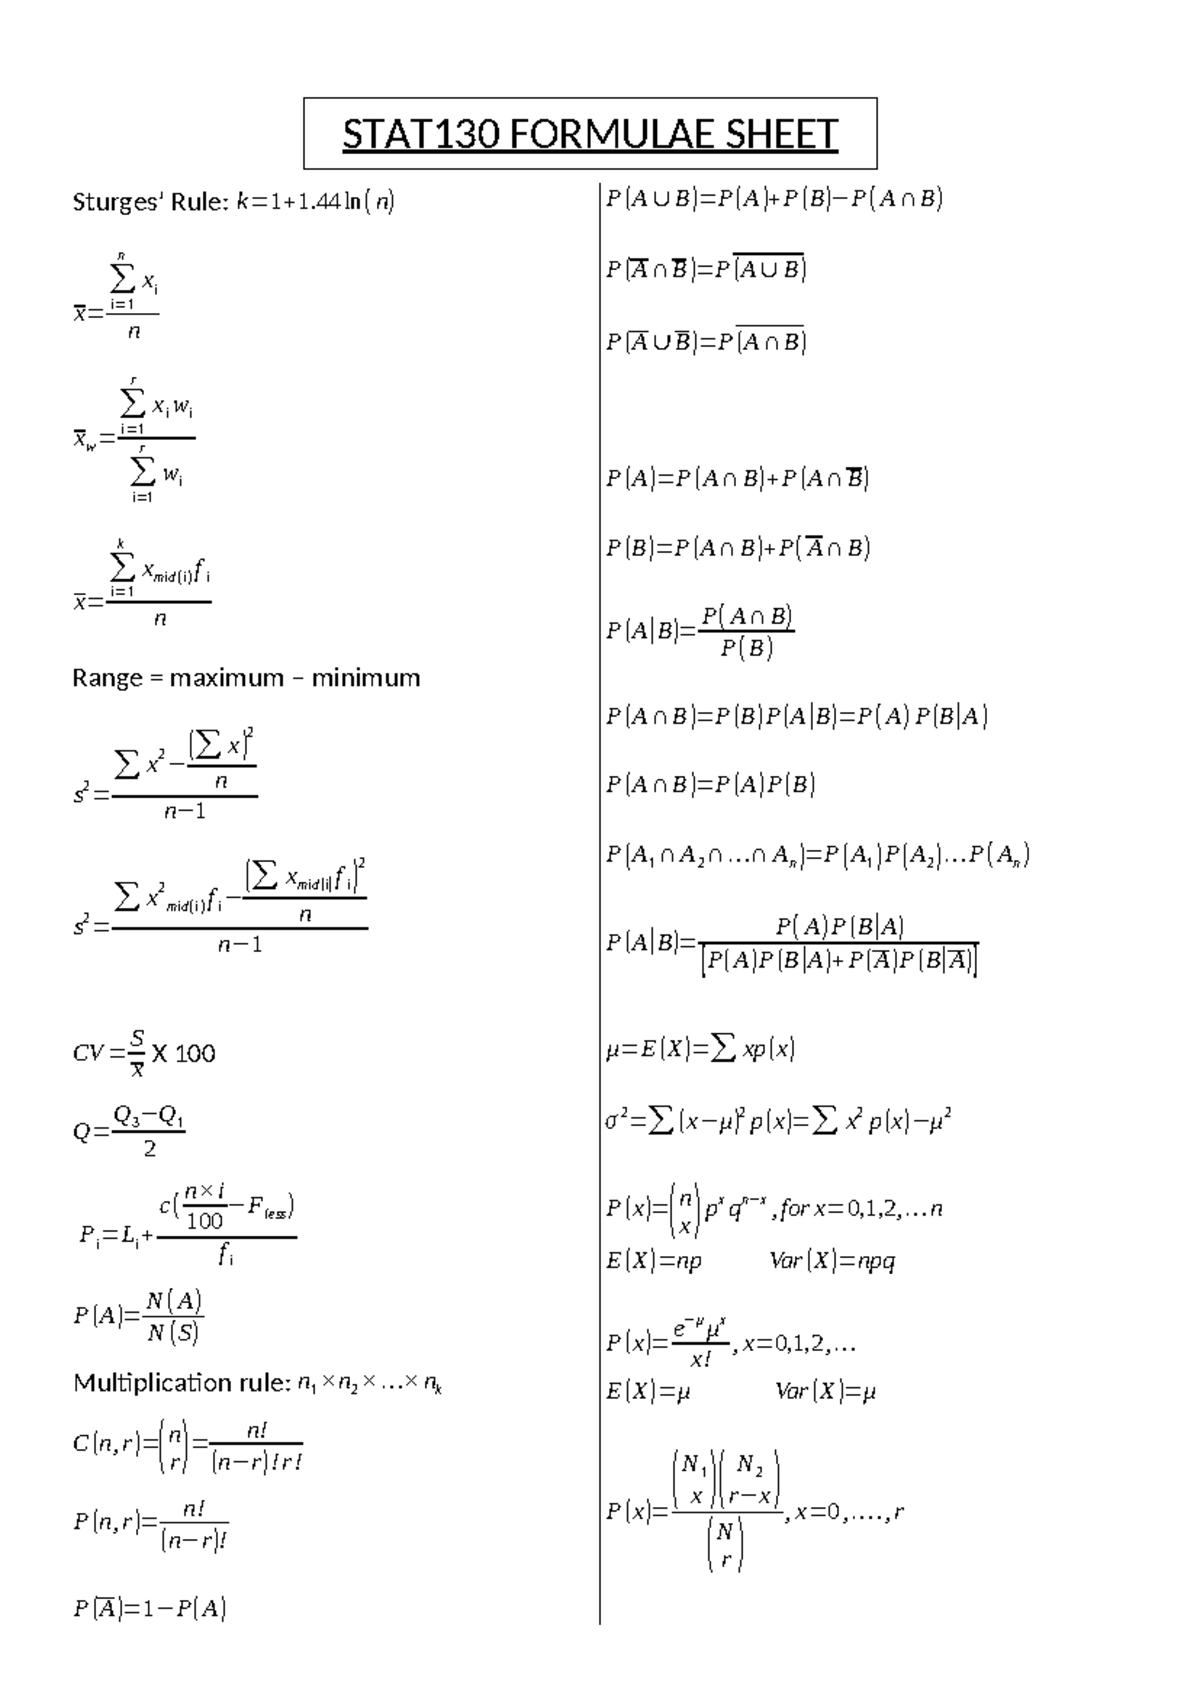 STAT130 FORMULAE SHEET
Sturges' Rule: k=1+1.44 ln(n)
x̅ = (∑_{i=1}^{n} x_i)/n
x̅_w = (∑_{i=1}^{r} x_i w_i)/(∑_{i=1}^{r} w_i)
x̅ = (∑_{i=1}^{k} x_{mid(i)} f_i)/n
Range = maximum – minimum
s² = (∑x² − (∑x)²/n)/(n−1)
s² = (∑x²_{mid(i)} f_i − (∑x_{mid(i)} f_i)²/n)/(n−1)
CV = S/x̅ X 100
Q = (Q₃−Q₁)/2
P_i = L_i + c((n×i)/100 − F_{less})/f_i
P(A) = N(A)/N(S)
Multiplication rule: n₁×n₂×…×n_k
C(n,r) = (n r) = n!/((n−r)!r!)
P(n,r) = n!/(n−r)!
P(A̅)=1−P(A)
P(A∪B)=P(A)+P(B)−P(A∩B)
P(A̅∩B̅)=P\overline{(A∪B)}
P(A̅∪B̅)=P\overline{(A∩B)}
P(A)=P(A∩B)+P(A∩B̅)
P(B)=P(A∩B)+P(A̅∩B)
P(A|B)=P(A∩B)/P(B)
P(A∩B)=P(B)P(A|B)=P(A)P(B|A)
P(A∩B)=P(A)P(B)
P(A₁∩A₂∩…∩A_n)=P(A₁)P(A₂)…P(A_n)
P(A|B)=P(A)P(B|A)/[P(A)P(B|A)+P(A̅)P(B|A̅)]
μ=E(X)=∑xp(x)
σ²=∑(x−μ)²p(x)=∑x²p(x)−μ²
P(x)=(n x)p^x q^{n−x}, for x=0,1,2,…n
E(X)=np Var(X)=npq
P(x)=e^{−μ}μ^x/x!, x=0,1,2,…
E(X)=μ Var(X)=μ
P(x)=(N₁ x)(N₂ r−x)/(N r), x=0,….,r